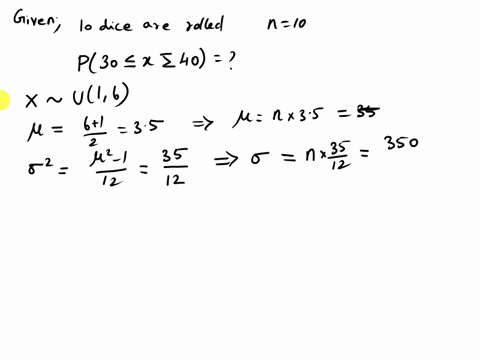 Given; 10 dice are rolled n=10
P(30 ≤ x ∑ 40) = ?
X ~ U(1,6)
μ = 6+1/2 = 3.5 ⇒ μ = n × 3.5 = 35
σ² = μ²-1/12 = 35/12 ⇒ σ = n × 35/12 = 350